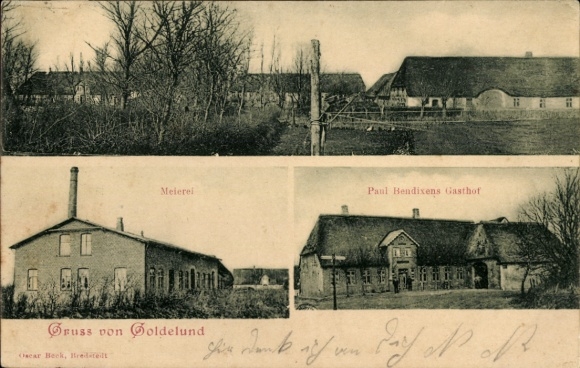 Meierei
Paul Bendixens Gasthof
Gruss von Goldelund
denk ich
Oscar Böck, Bredstedt